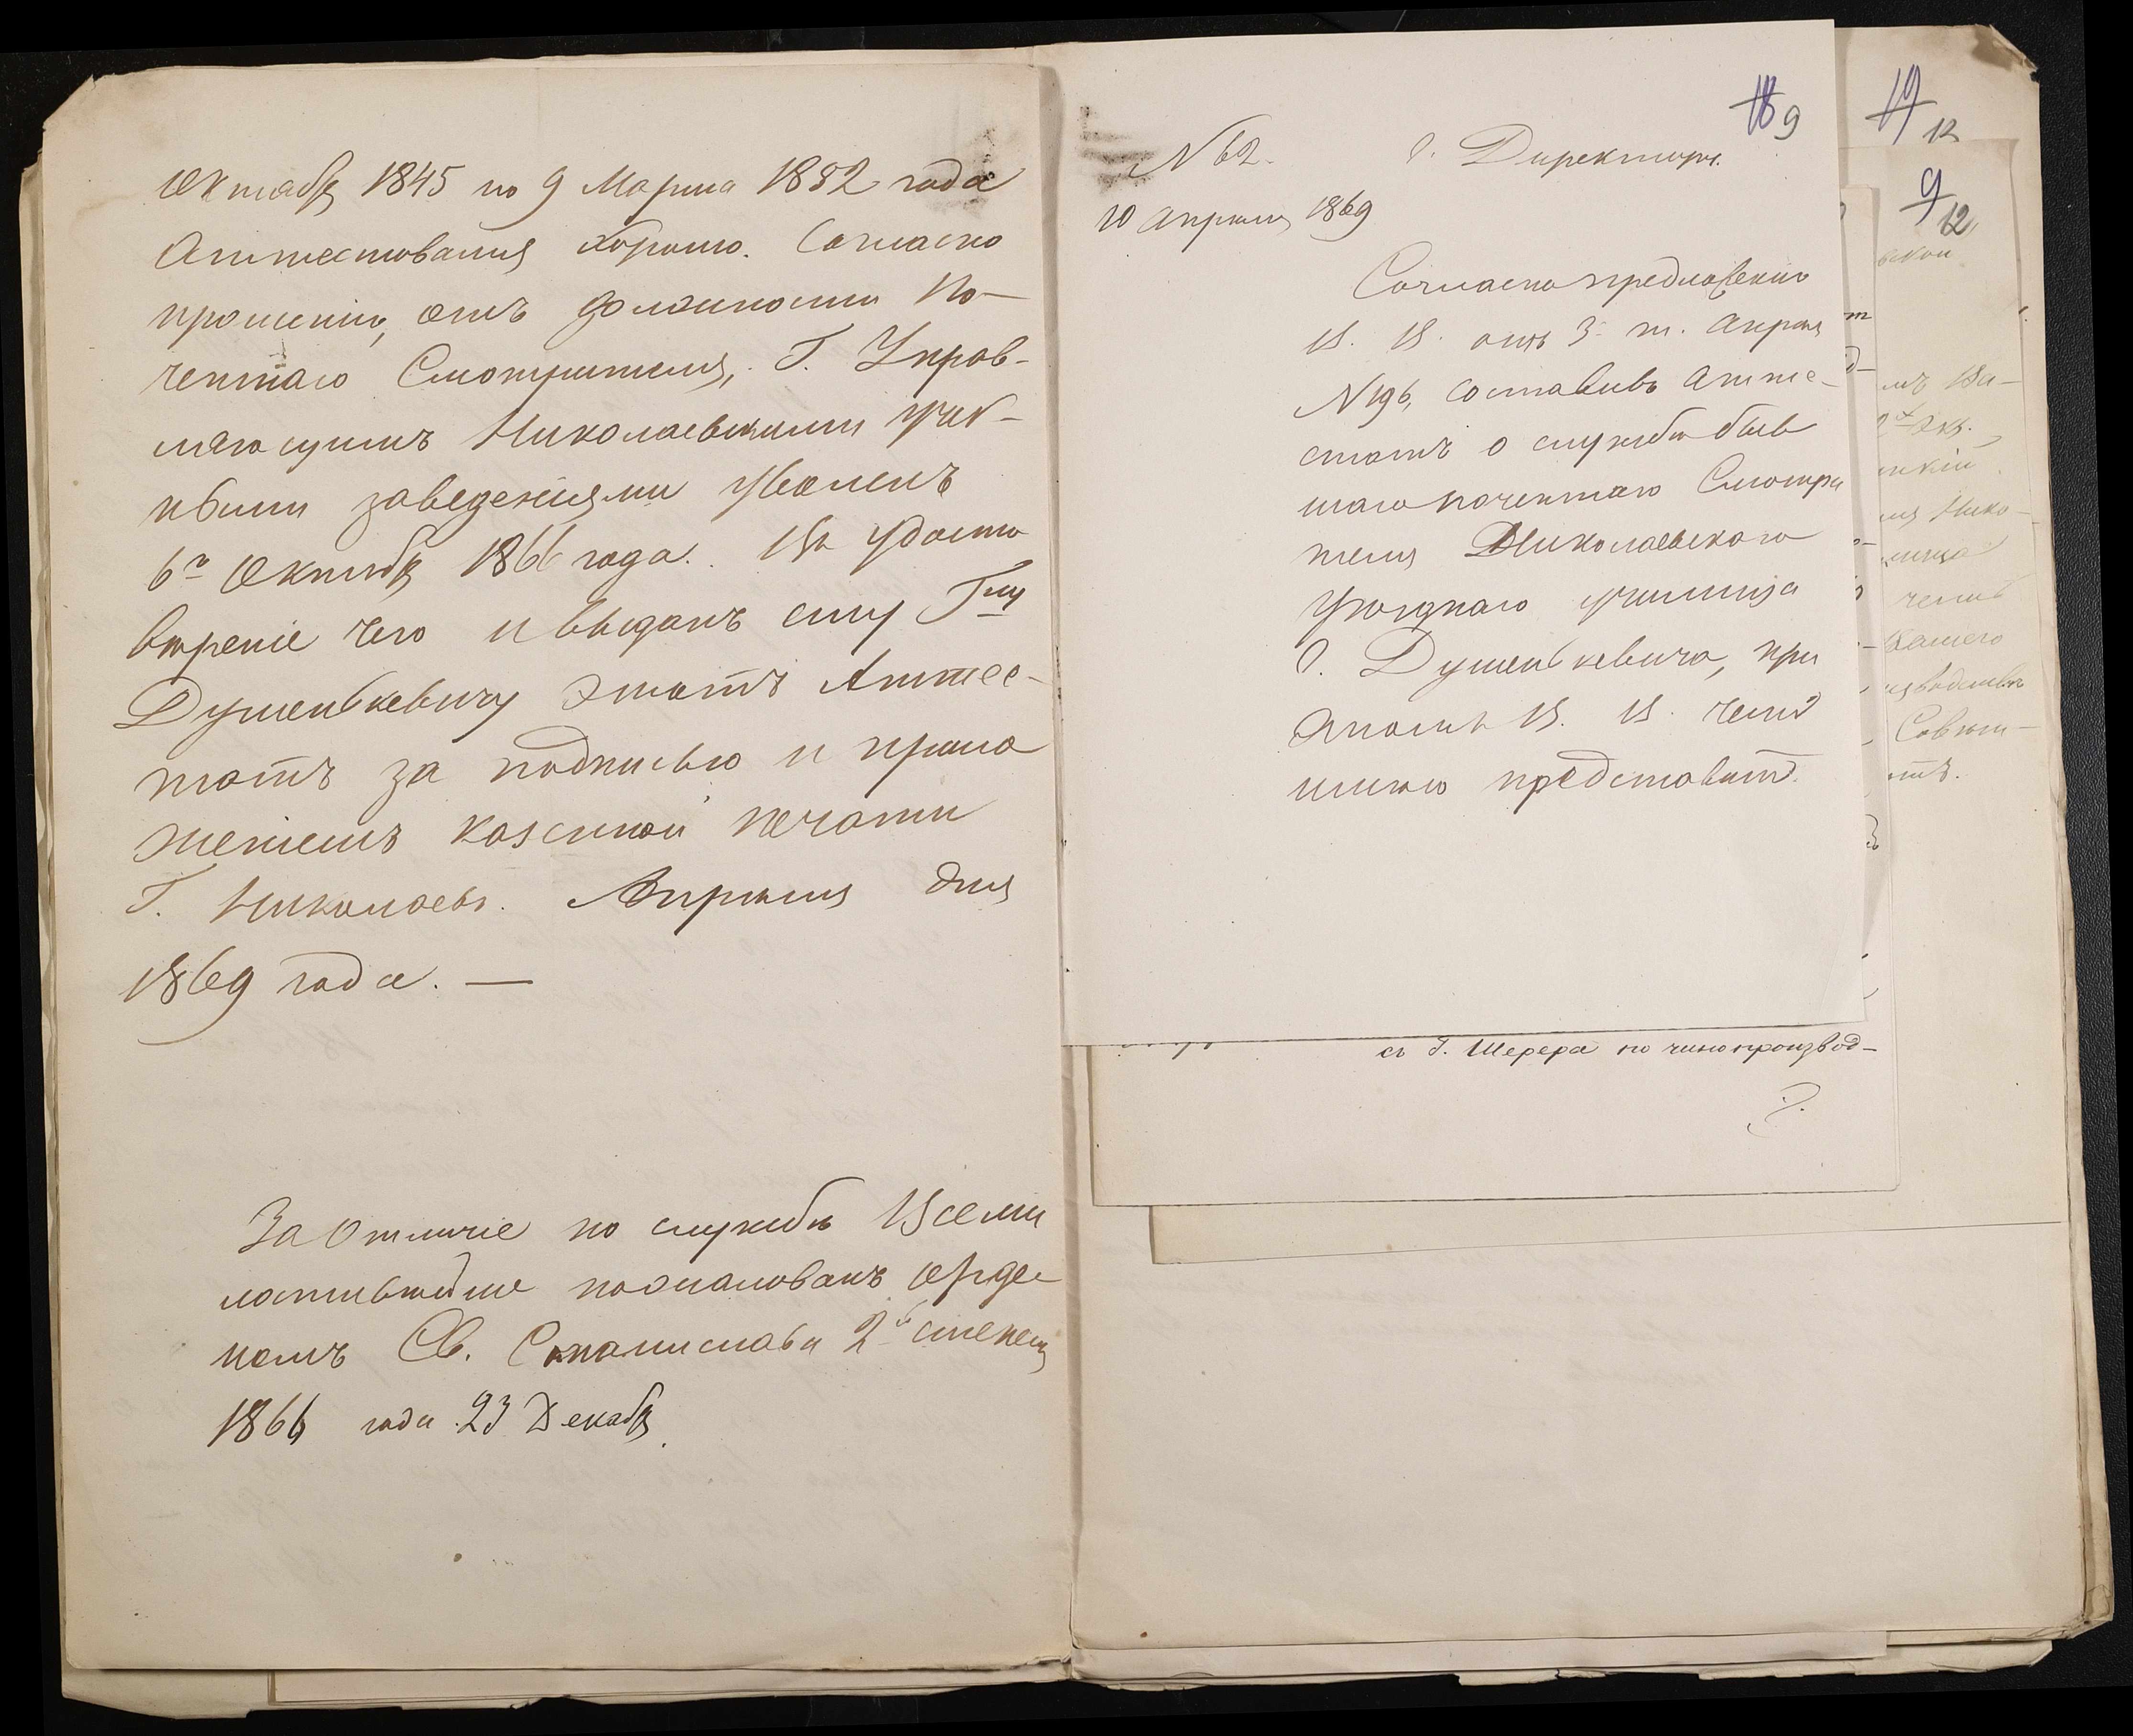 Октября 1845 по 9 Марта 1852 года
Аттестовался хорошо. Согласно
прошенію, отъ должности По-
четнаго Смотрителя, Г. Управ-
ляющимъ Николаевскими учеб-
ными заведеніями уволенъ
6го Октября 1866 года. Въ удосто
вѣреніе чего и выданъ ему Гну
Душенькевичу этотъ Аттес-
татъ за подписью и прило
женіемъ казенной печати
Г. Николаевъ. Апрѣля дня
1869 года. —
За отличіе по службѣ Всеми
лостивѣйше пожалованъ орде
номъ Св. Станислава 2й степени
1866 года 23 Декабря.
18 9
N 62.
Г. Директору.
10 Апрѣля 1869
Согласно предложенію
В. В. отъ 3. т. Апрѣля
N 196, составивъ Атте-
статъ о службѣ быв
шаго почетнаго Смотри
теля Николаевскаго
уѣзднаго училища
Г. Душенькевича, при
этомъ В. В. честь
имѣю представить.
съ Г. Шерера по чинопроизвод-
19 12
9 12
ской
мъ Ва-
Экз.
ля Нико-
лища
честь
Вашего
изводствѣ
Совѣт-
тъ.